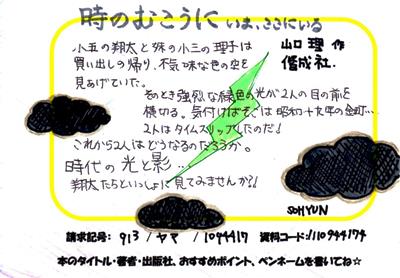 時のむこうに いま、ここにいる
山口 理 作
偕成社.
小五の翔太と妹の小三の理子は
買い出しの帰り、不気味な色の空を
見あげていた。
そのとき強烈な緑色の光が2人の目の前を
横切る。気付けばそこは昭和十九年の
2人はタイムスリップしたのだ!
これから2人はどうなるのだろうか。
時代の光と影…
翔太たちといっしょに見てみませんか?!
SOHYUN
請求記号: 913 / ヤマ / 1094417 資料コード://110944174
本のタイトル・著者・出版社、おすすめポイント、ペンネームを書いてね☆